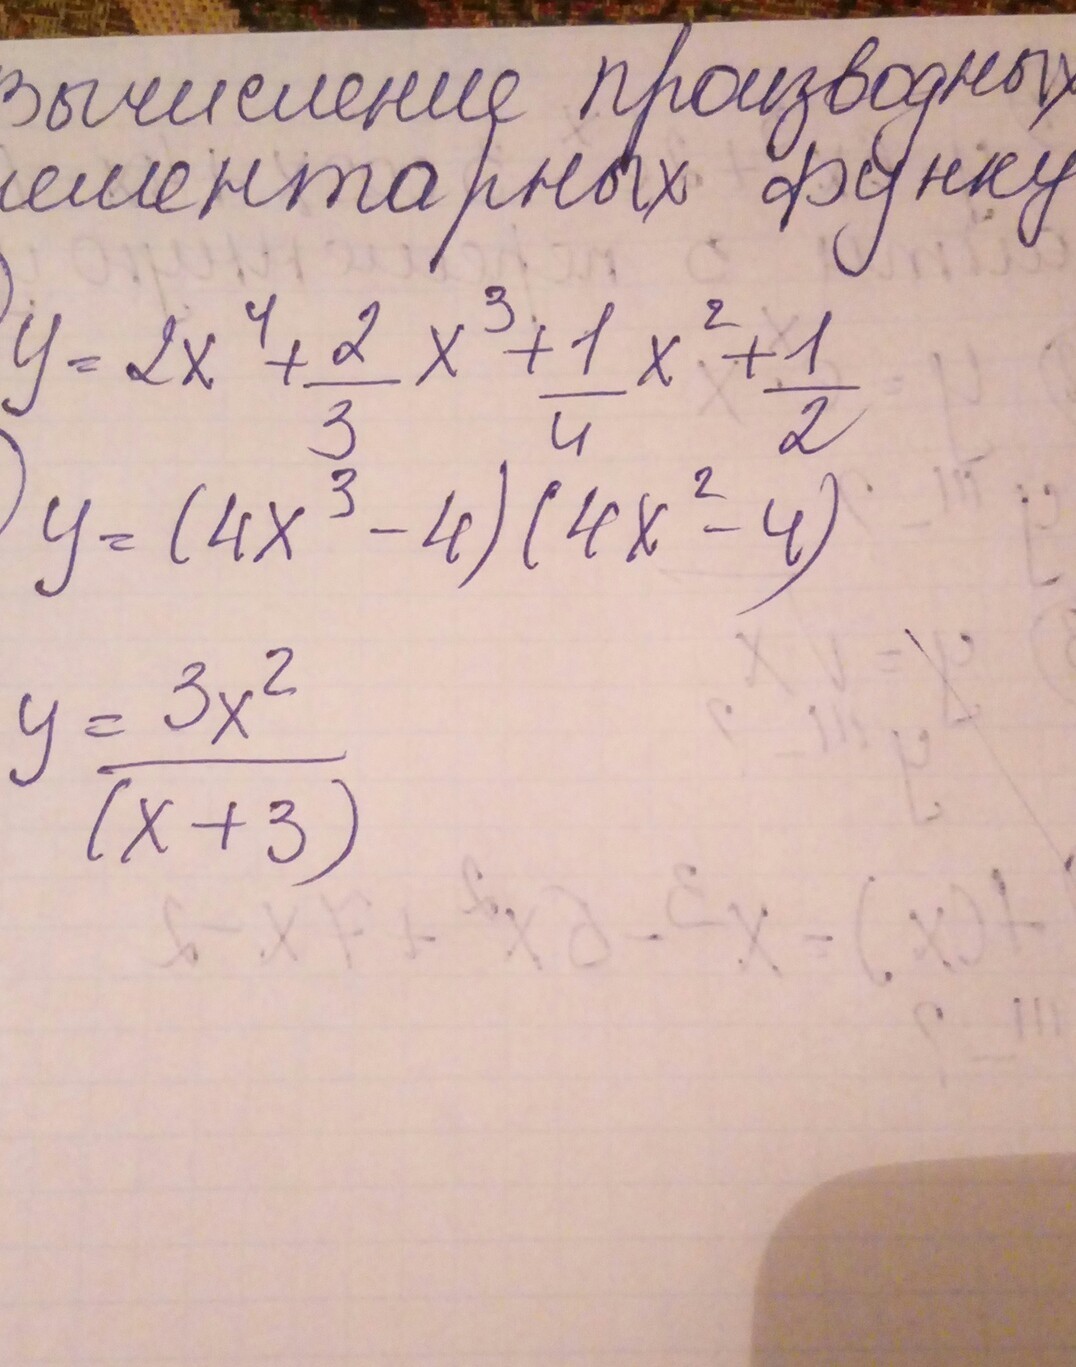 Вычисление производных
лементарных функц
) y = 2x⁴ + 2/3 x³ + 1/4 x² + 1/2
) y = (4x³ - 4)(4x² - 4)
y = 3x²/(x+3)